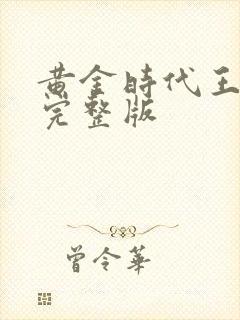 黄金時代王
完整版
曾令華